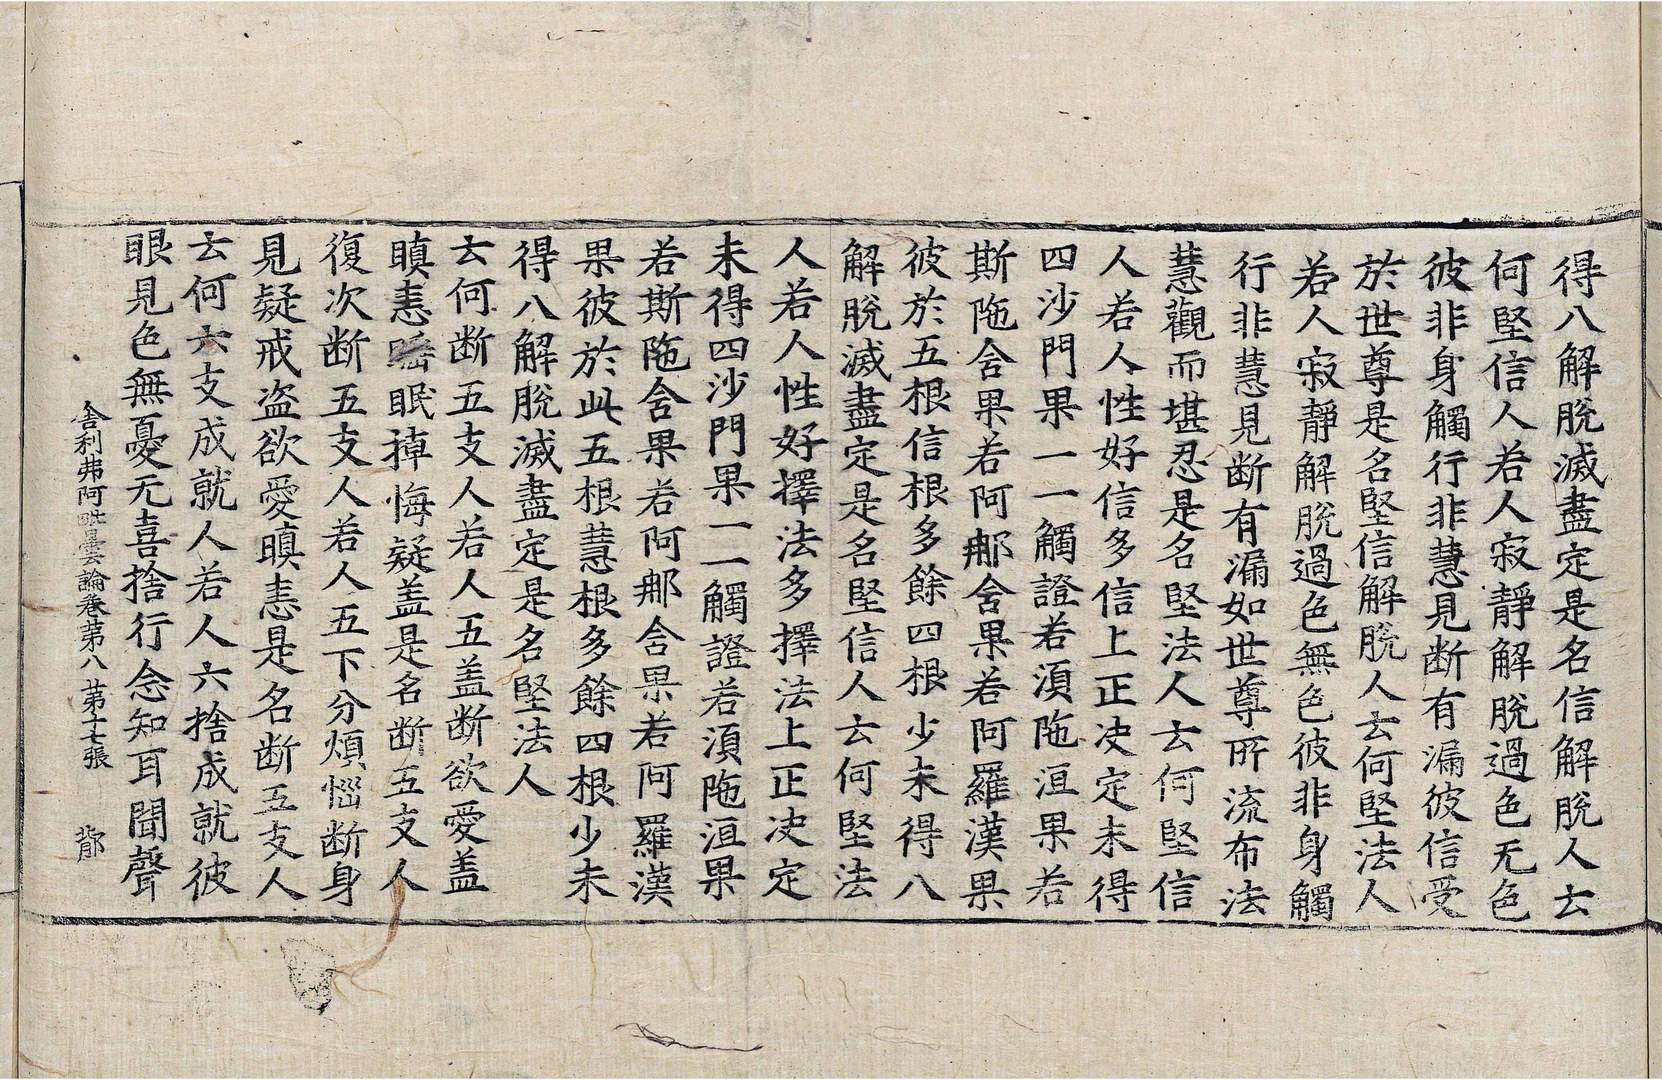 得八解脫滅盡定是名信解脫人云
何堅信人若人寂靜解脫過色无色
彼非身觸行非慧見断有漏彼信受
於世尊是名堅信解脫人云何堅法人
若人寂靜解脫過色無色彼非身觸
行非慧見断有漏如世尊所流布法
慧觀而堪忍是名堅法人云何堅信
人若人性好信多信上正决定未得
四沙門果一一觸證若湏陁洹果若
斯陁含果若阿𨚗含果若阿羅漢果
彼於五根信根多餘四根少未得八
解脫滅盡定是名堅信人云何堅法
人若人性好擇法多擇法上正决定
未得四沙門果一一觸證若湏陁洹果
若斯陁含果若阿𨚗含果若阿羅漢
果彼於此五根慧根多餘四根少未
得八解脫滅盡定是名堅法人
云何断五支人若人五盖断欲愛盖
瞋恚睡眠掉悔疑盖是名断五支人
復次断五支人若人五下分煩惱断身
見疑戒盗欲愛瞋恚是名断五支人
云何六支成就人若人六捨成就彼
眼見色無憂无喜捨行念知耳聞聲
舍利弗阿毗曇論卷苐八 苐十七張